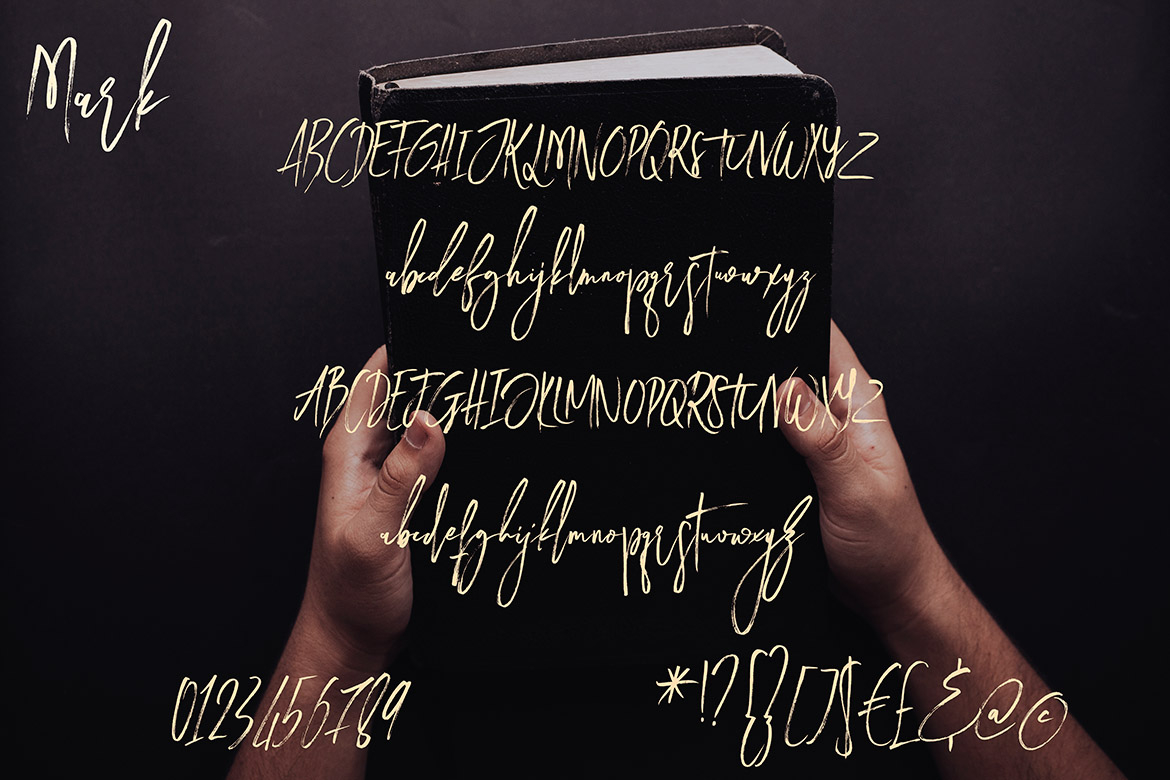 Mark
ABCDEFGHIJKLMNOPQRSTUVWXYZ
abcdefghijklmnopqrstuvwxyz
ABCDEFGHIJKLMNOPQRSTUVWXYZ
abcdefghijklmnopqrstuvwxyz
0123456789
*!?{}[]$€£&@©